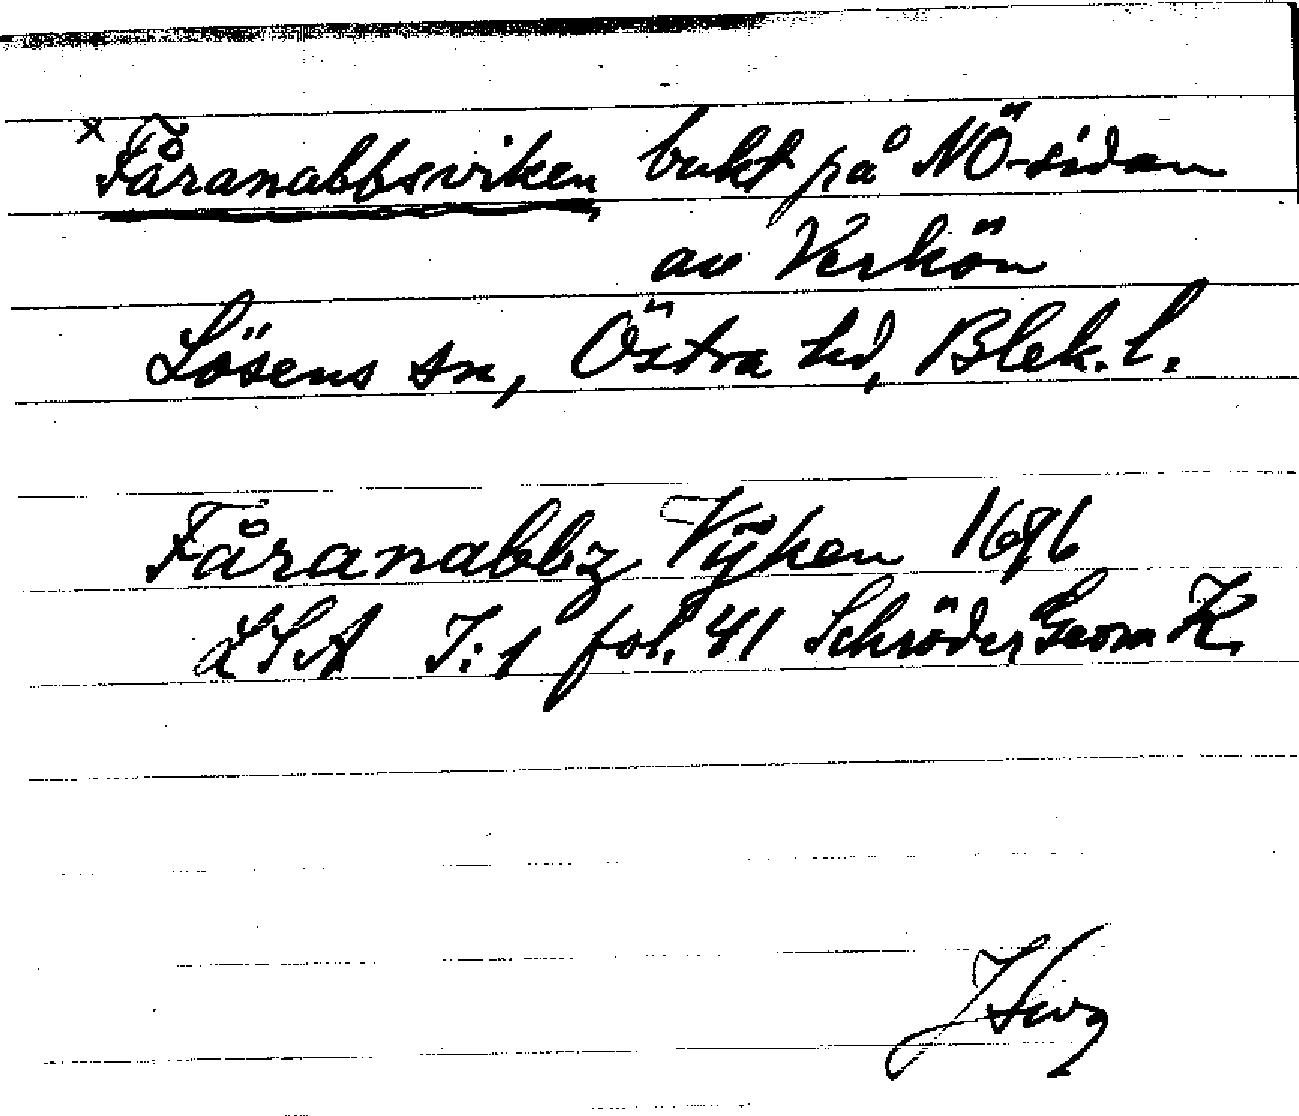 x Fåranabbsviken bukt på NÖ-sidan
av Verkön
Lösens sn, Östra hd, Blek. l.
Fåranabbz Vÿken
LSA I:1 fol. 41 Schröder Geom K.